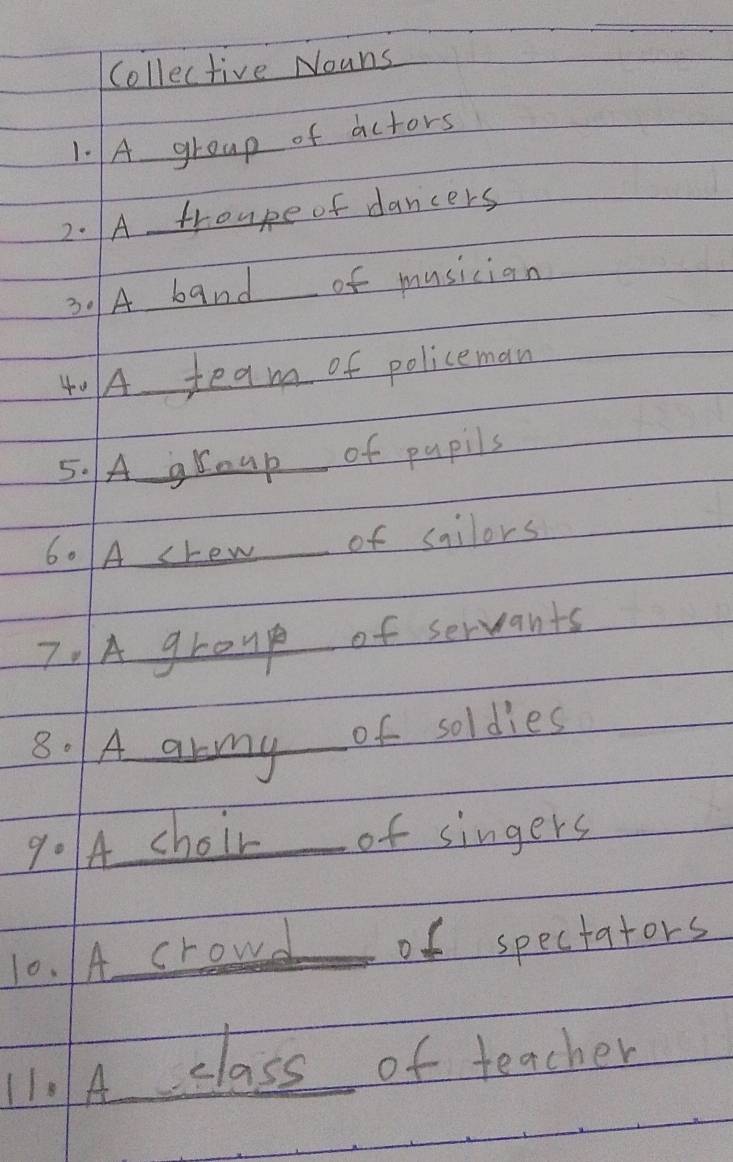 Collective Nouns
1. A group of actors
2. A troupe of dancers
3. A band of musician
4. A team of policeman
5. A group of pupils
6. A crew of sailors
7. A group of servants
8. A army of soldies
9. A choir of singers
10. A crowd of spectators
11. A class of teacher